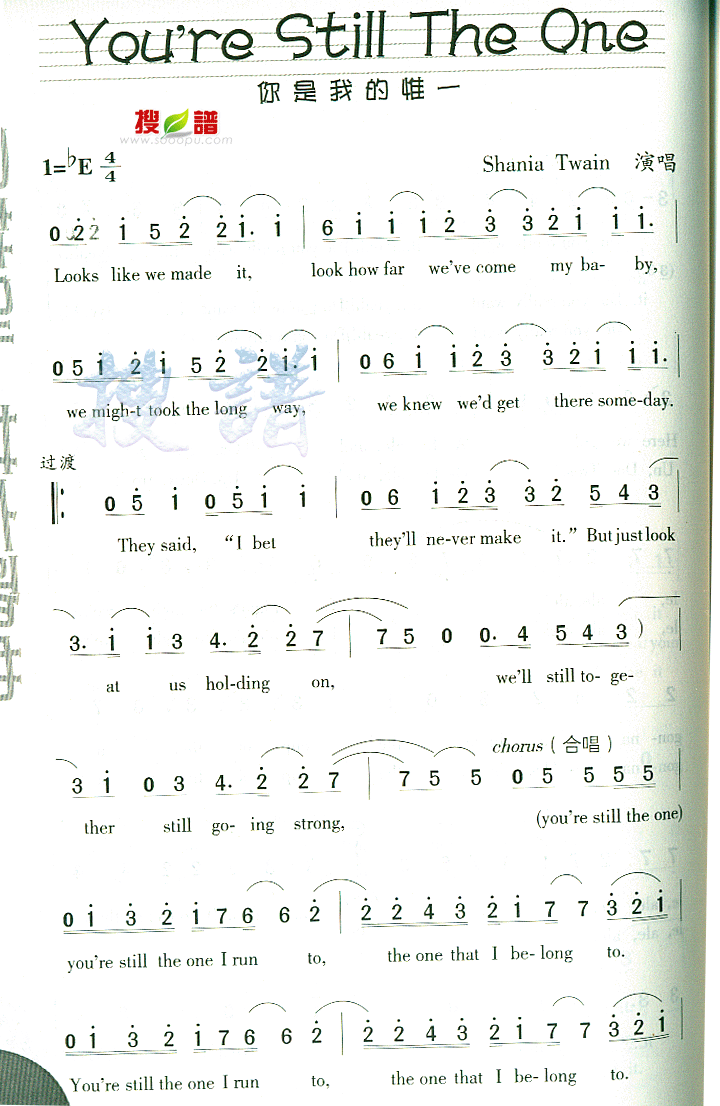 You're Still The One
你是我的惟一
搜 譜
www.sooopu.com
1=♭E 4/4 Shania Twain 演唱
0 2 2 1 5 2 2 1. 1 | 6 1 1 1 2 3 3 2 1 1 1.
Looks like we made it, look how far we've come my ba- by,
0 5 1 2 1 5 2 2 1. 1 | 0 6 1 1 2 3 3 2 1 1 1.
we migh-t took the long way, we knew we'd get there some-day.
过渡
0 5 1 0 5 1 1 | 0 6 1 2 3 3 2 5 4 3
They said, "I bet they'll ne-ver make it." But just look
3. 1 1 3 4. 2 2 7 | 7 5 0 0. 4 5 4 3 )
at us hol-ding on, we'll still to- ge-
chorus ( 合唱 )
3 1 0 3 4. 2 2 7 | 7 5 5 0 5 5 5 5
ther still go- ing strong, (you're still the one)
0 1 3 2 1 7 6 6 2 | 2 2 4 3 2 1 7 7 3 2 1
you're still the one I run to, the one that I be- long to.
0 1 3 2 1 7 6 6 2 | 2 2 4 3 2 1 7 7 3 2 1
You're still the one I run to, the one that I be- long to.